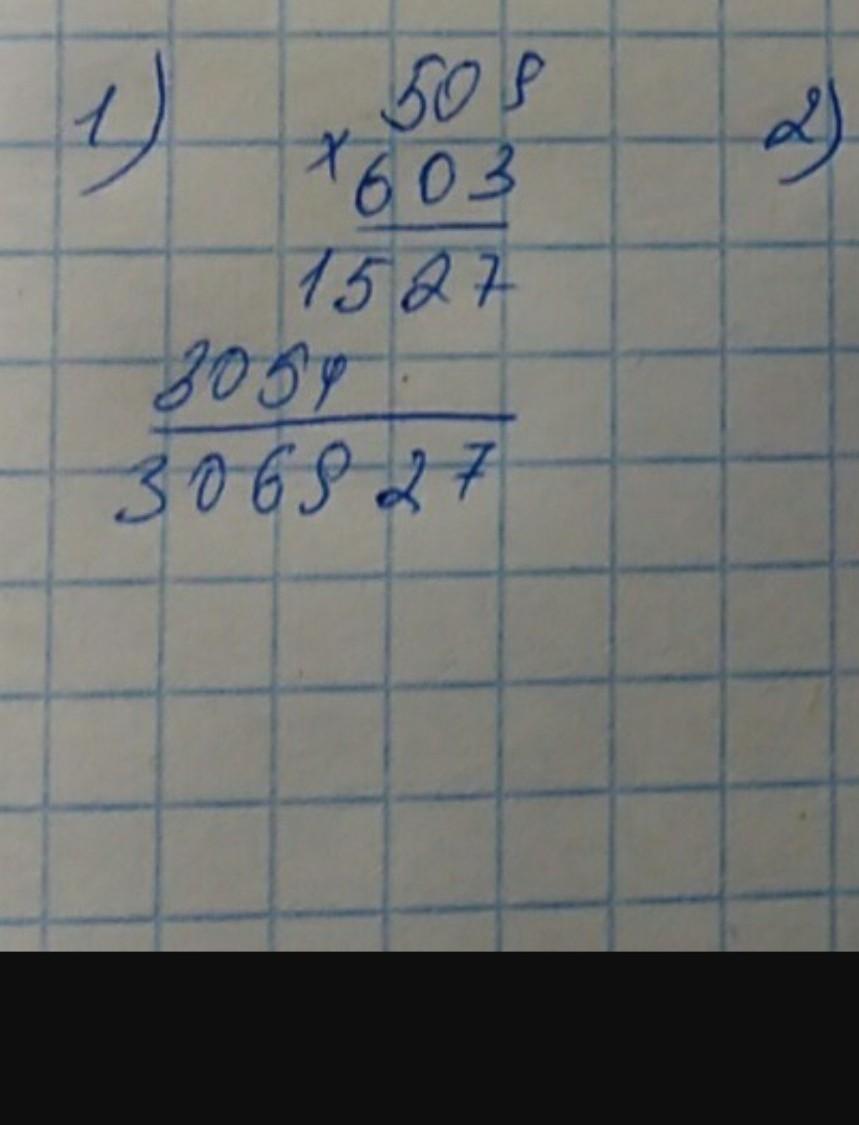 1) 509
× 603
1527
3054
306927
2)